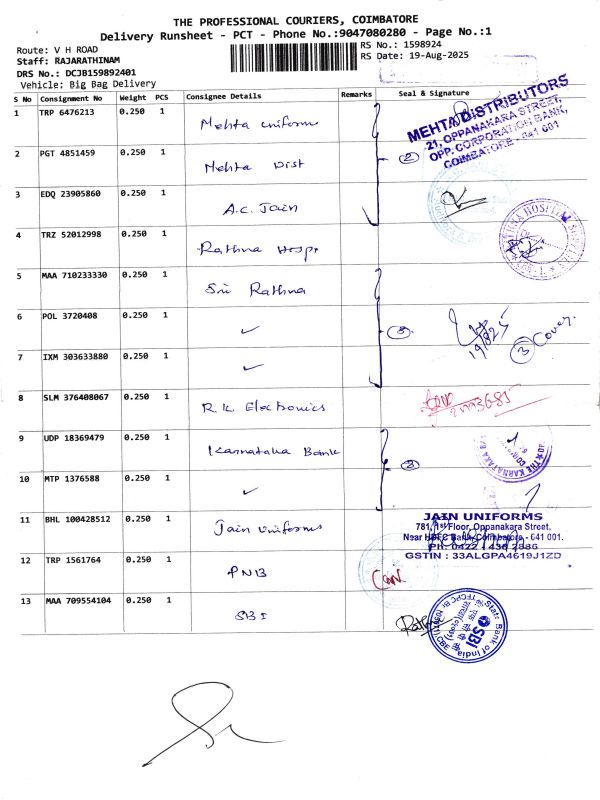 THE PROFESSIONAL COURIERS, COIMBATORE
Delivery Runsheet - PCT - Phone No.:9047080280 - Page No.:1
Route: V H ROAD
Staff: RAJARATHINAM
DRS No.: DCJB159892401
Vehicle: Big Bag Delivery
RS No.: 1598924
RS Date: 19-Aug-2025
S No Consignment No Weight PCS Consignee Details Remarks Seal & Signature
1 TRP 6476213 0.250 1 Mehta Uniforms
MEHTA DISTRIBUTORS
21, OPPANAKARA STREET,
OPP. CORPORATION BANK,
COIMBATORE - 641 001
2 PGT 4851459 0.250 1 Mehta Dist 2
3 EDQ 23905860 0.250 1 A.C. Jain
4 TRZ 52012998 0.250 1 Rathna Hospi
5 MAA 710233330 0.250 1 Sri Rathna
6 POL 3720408 0.250 1 ✓ 3
19/8/25
3 Cover.
7 IXM 303633880 0.250 1 ✓
8 SLM 376408067 0.250 1 R.K Electronics
9 UDP 18369479 0.250 1 Karnataka Bank 2
10 MTP 1376588 0.250 1 ✓
11 BHL 100428512 0.250 1 Jain Uniforms
JAIN UNIFORMS
781, 1st Floor, Oppanakara Street,
Near HDFC Bank, Coimbatore - 641 001.
GSTIN : 33ALGPA4619J1ZD
12 TRP 1561764 0.250 1 PNB
13 MAA 709554104 0.250 1 SBI
State Bank of India
SBI